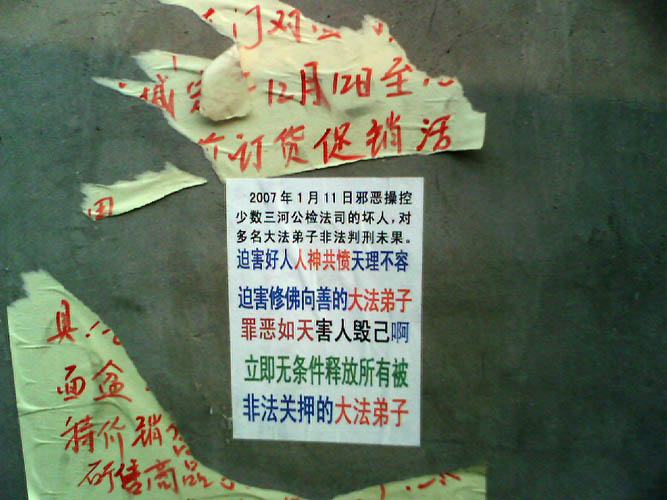 们对
城 12月12日至
订货促销活
田
2007年1月11日邪恶操控
少数三河公检法司的坏人,对
多名大法弟子非法判刑未果。
迫害好人人神共愤天理不容
迫害修佛向善的大法弟子
罪恶如天害人毁己啊
立即无条件释放所有被
非法关押的大法弟子
具
面盆
特价销
所售商品